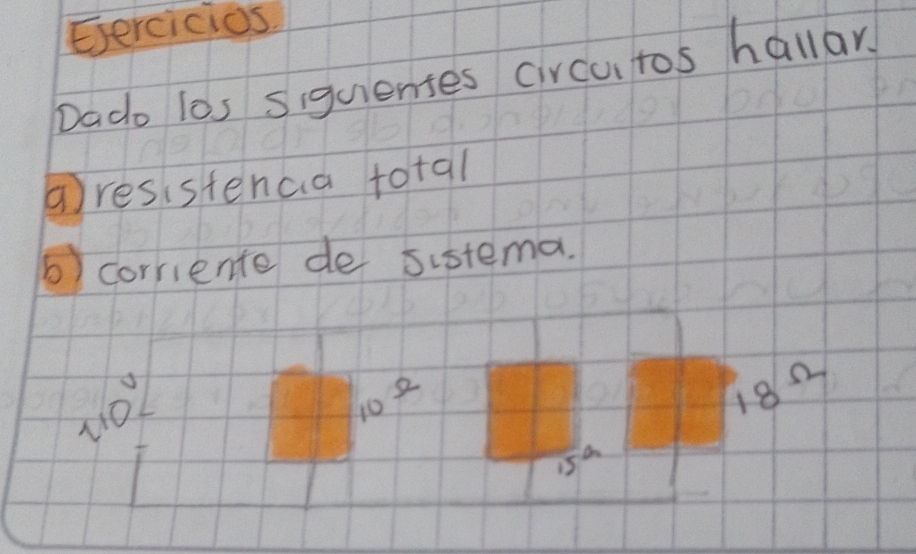 Ejercicios.
Dado los siguientes circuitos hallar.
a) resistencia total
b) corriente de sistema.
10 Ω
15 Ω
18 Ω